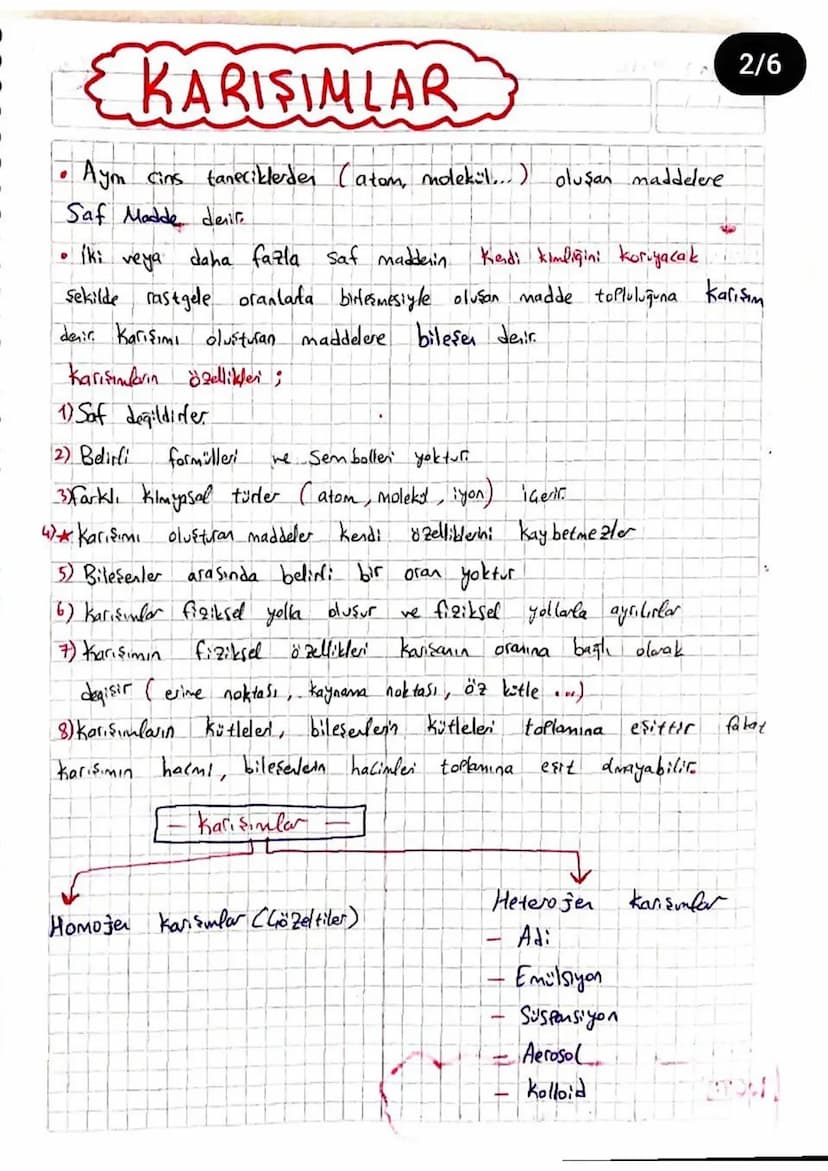 KARIŞIMLAR
2/6
• Aynı cins taneciklerden (atom, molekül...) oluşan maddelere
Saf Madde denir.
• İki veya daha fazla saf maddenin kendi kimliğini koruyacak
şekilde rastgele oranlarla birleşmesiyle oluşan madde topluluğuna Karışım
denir. Karışımı oluşturan maddelere bileşen denir.
Karışımların özellikleri ;
1) Saf değildirler
2) Belirli formülleri ve Sembolleri yoktur.
3) Farklı kimyasal türler (atom, molekül, iyon) içerir.
4)★ Karışımı oluşturan maddeler kendi özelliklerini kaybetmezler
5) Bileşenler arasında belirli bir oran yoktur
6) Karışımlar fiziksel yolla oluşur ve fiziksel yollarla ayrılırlar
7) Karışımın fiziksel özellikleri karışanın oranına bağlı olarak
değişir (erime noktası, kaynama noktası, öz kütle ...)
8) Karışımların kütleleri, bileşenlerin kütleleri toplamına eşittir fakat
karışımın hacmi, bileşenlerin hacimleri toplamına eşit olmayabilir.
— Karışımlar —
Homojen Karışımlar (Çözeltiler)
Heterojen Karışımlar
– Adi
– Emülsiyon
– Süspansiyon
– Aerosol
– Kolloid